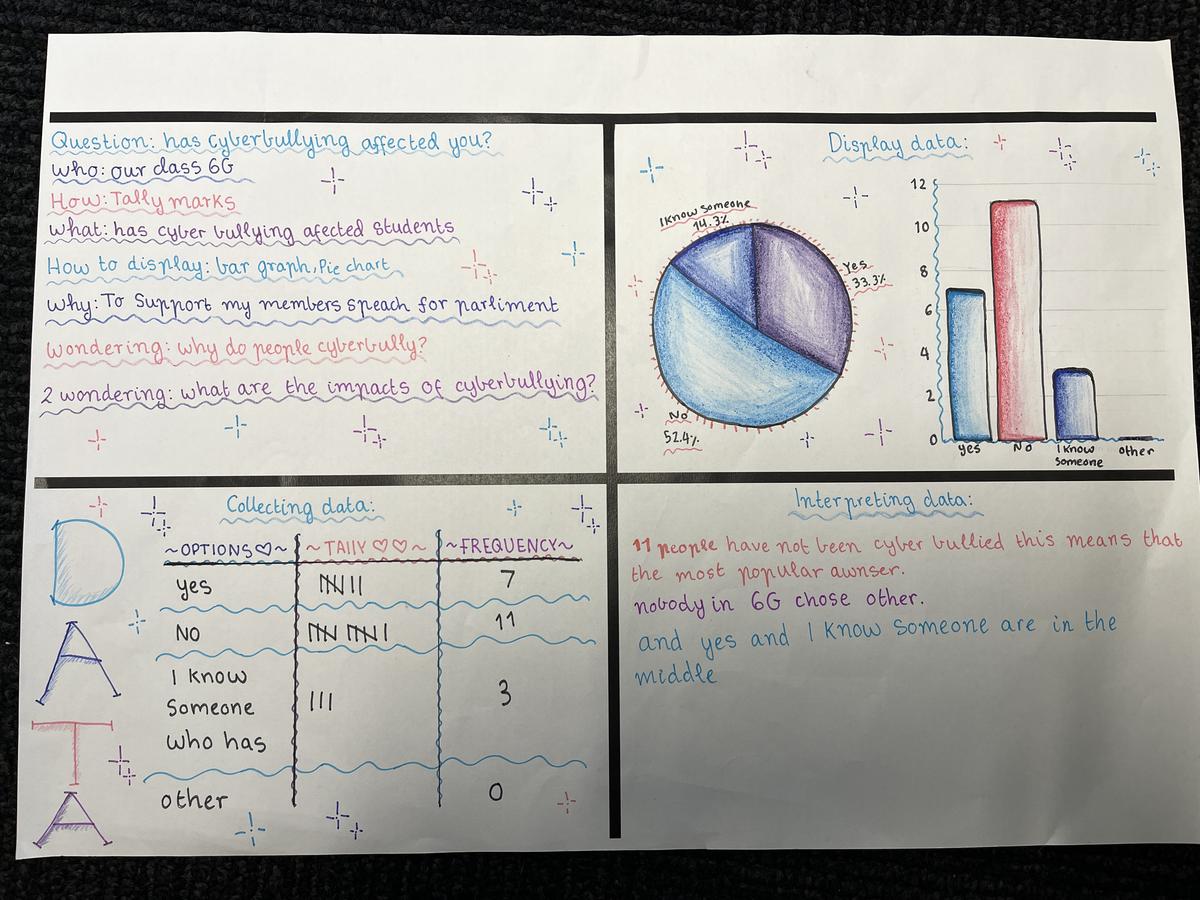 Question: has cyberbullying affected you?
Who: our class 6G
How: Tally marks
what: has cyber bullying afected students
How to display: bar graph, Pie chart
Why: To Support my members speach for parliment
Wondering: why do people cyberbully?
2 wondering: what are the impacts of cyberbullying?
Display data:
I know someone
14.3%
Yes
33.3%
No
52.4%
12
10
8
6
4
2
0
yes
No
I know
someone
other
DATA
Collecting data:
~OPTIONS♡~ ~TAllY ♡♡~ ~FREQUENCY~
yes 7
NO 11
I know
Someone 3
who has
other 0
Interpreting data:
11 people have not been cyber bullied this means that
the most popular awnser.
nobody in 6G chose other.
and yes and I know someone are in the
middle